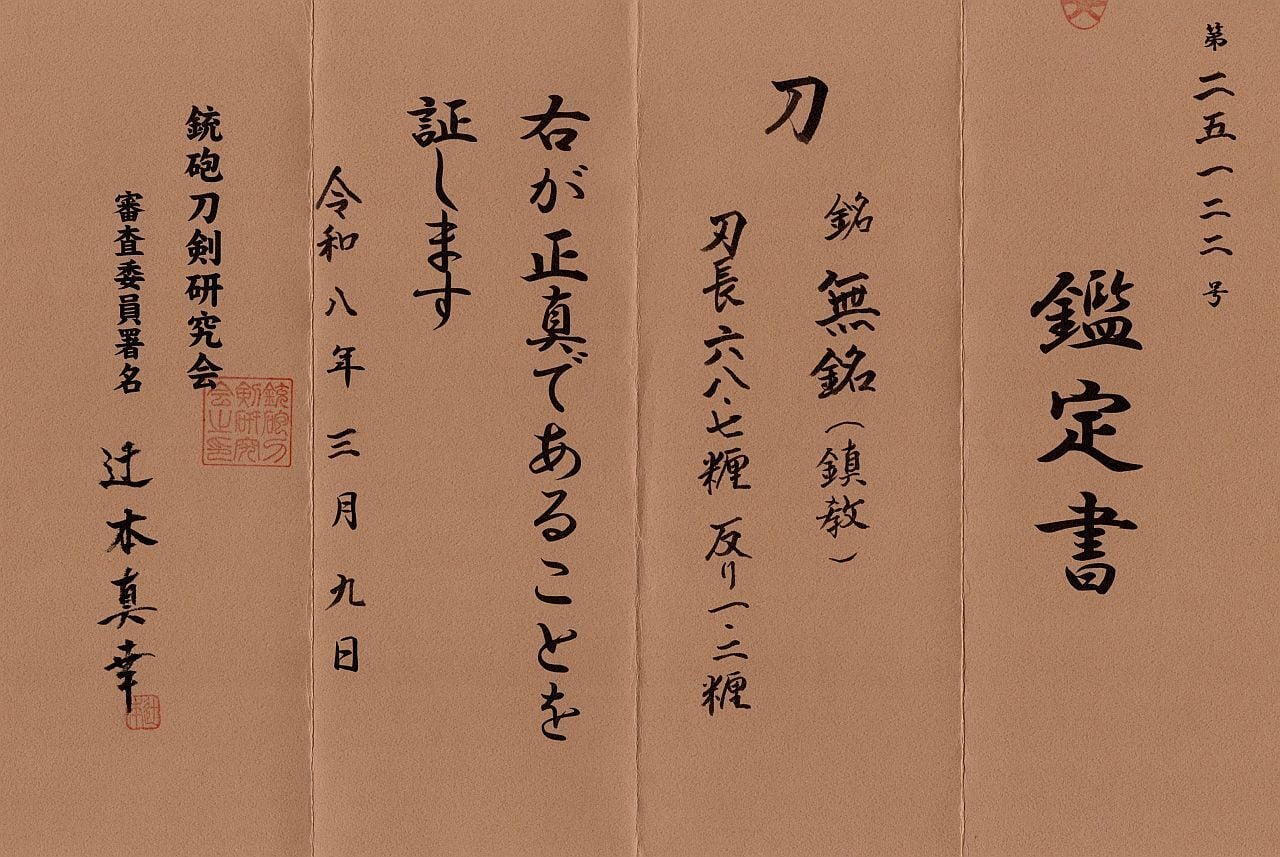 第二五一二二号
鑑定書
刀
銘 無銘(鎮教)
刃長 六八・七糎 反り 一・二糎
右が正真であることを
証します
令和八年三月九日
銃砲刀剣研究会
審査委員署名 辻本真幸
銃砲刀
剣研究
会之印
辻本